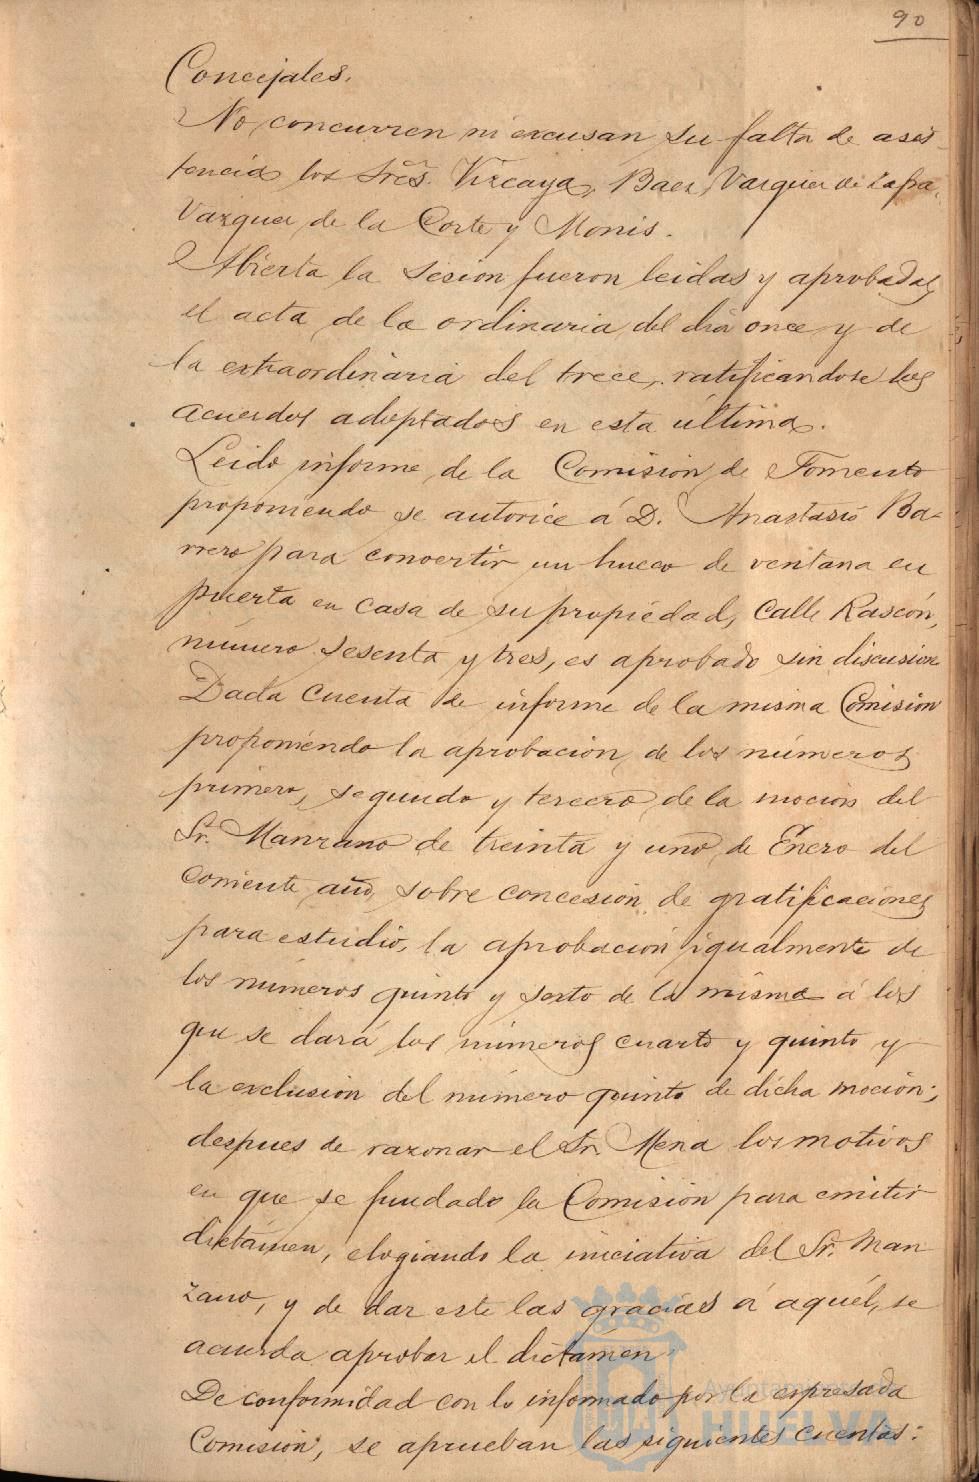 90
Concejales.
No concurren ni excusan su falta de asis-
tencia los Sres. Vizcaya, Baez, Vazquez de Zafra,
Vazquez de la Corte y Monis.
Abierta la sesion fueron leidas y aprobadas
el acta de la ordinaria del dia once y de
la extraordinaria del trece, ratificandose los
acuerdos adoptados en esta última.
Leido informe de la Comision de Fomento
proponiendo se autorice á D. Anastasio Ba-
rrero para convertir un hueco de ventana en
puerta en casa de su propiedad, Calle Rascón,
número sesenta y tres, es aprobado sin discusion
Dada cuenta de informe de la misma Comision
proponiendo la aprobacion de los números
primero, segundo y tercero de la mocion del
Sr. Manzano de treinta y uno de Enero del
corriente año, sobre concesion de gratificaciones
para estudio, la aprobación igualmente de
los números quinto y sexto de la misma á los
que se dará los números cuarto y quinto y
la exclusion del número quinto de dicha moción;
despues de razonar el Sr. Mena los motivos
en que se fundado la Comision para emitir
dictámen, elogiando la iniciativa del Sr. Man
zano, y de dar este las gracias á aquél, se
acuerda aprobar el dictámen
De conformidad con lo informado por la espresada
Comision, se aprueban las siguientes cuentas:
Ayuntamiento de
HUELVA